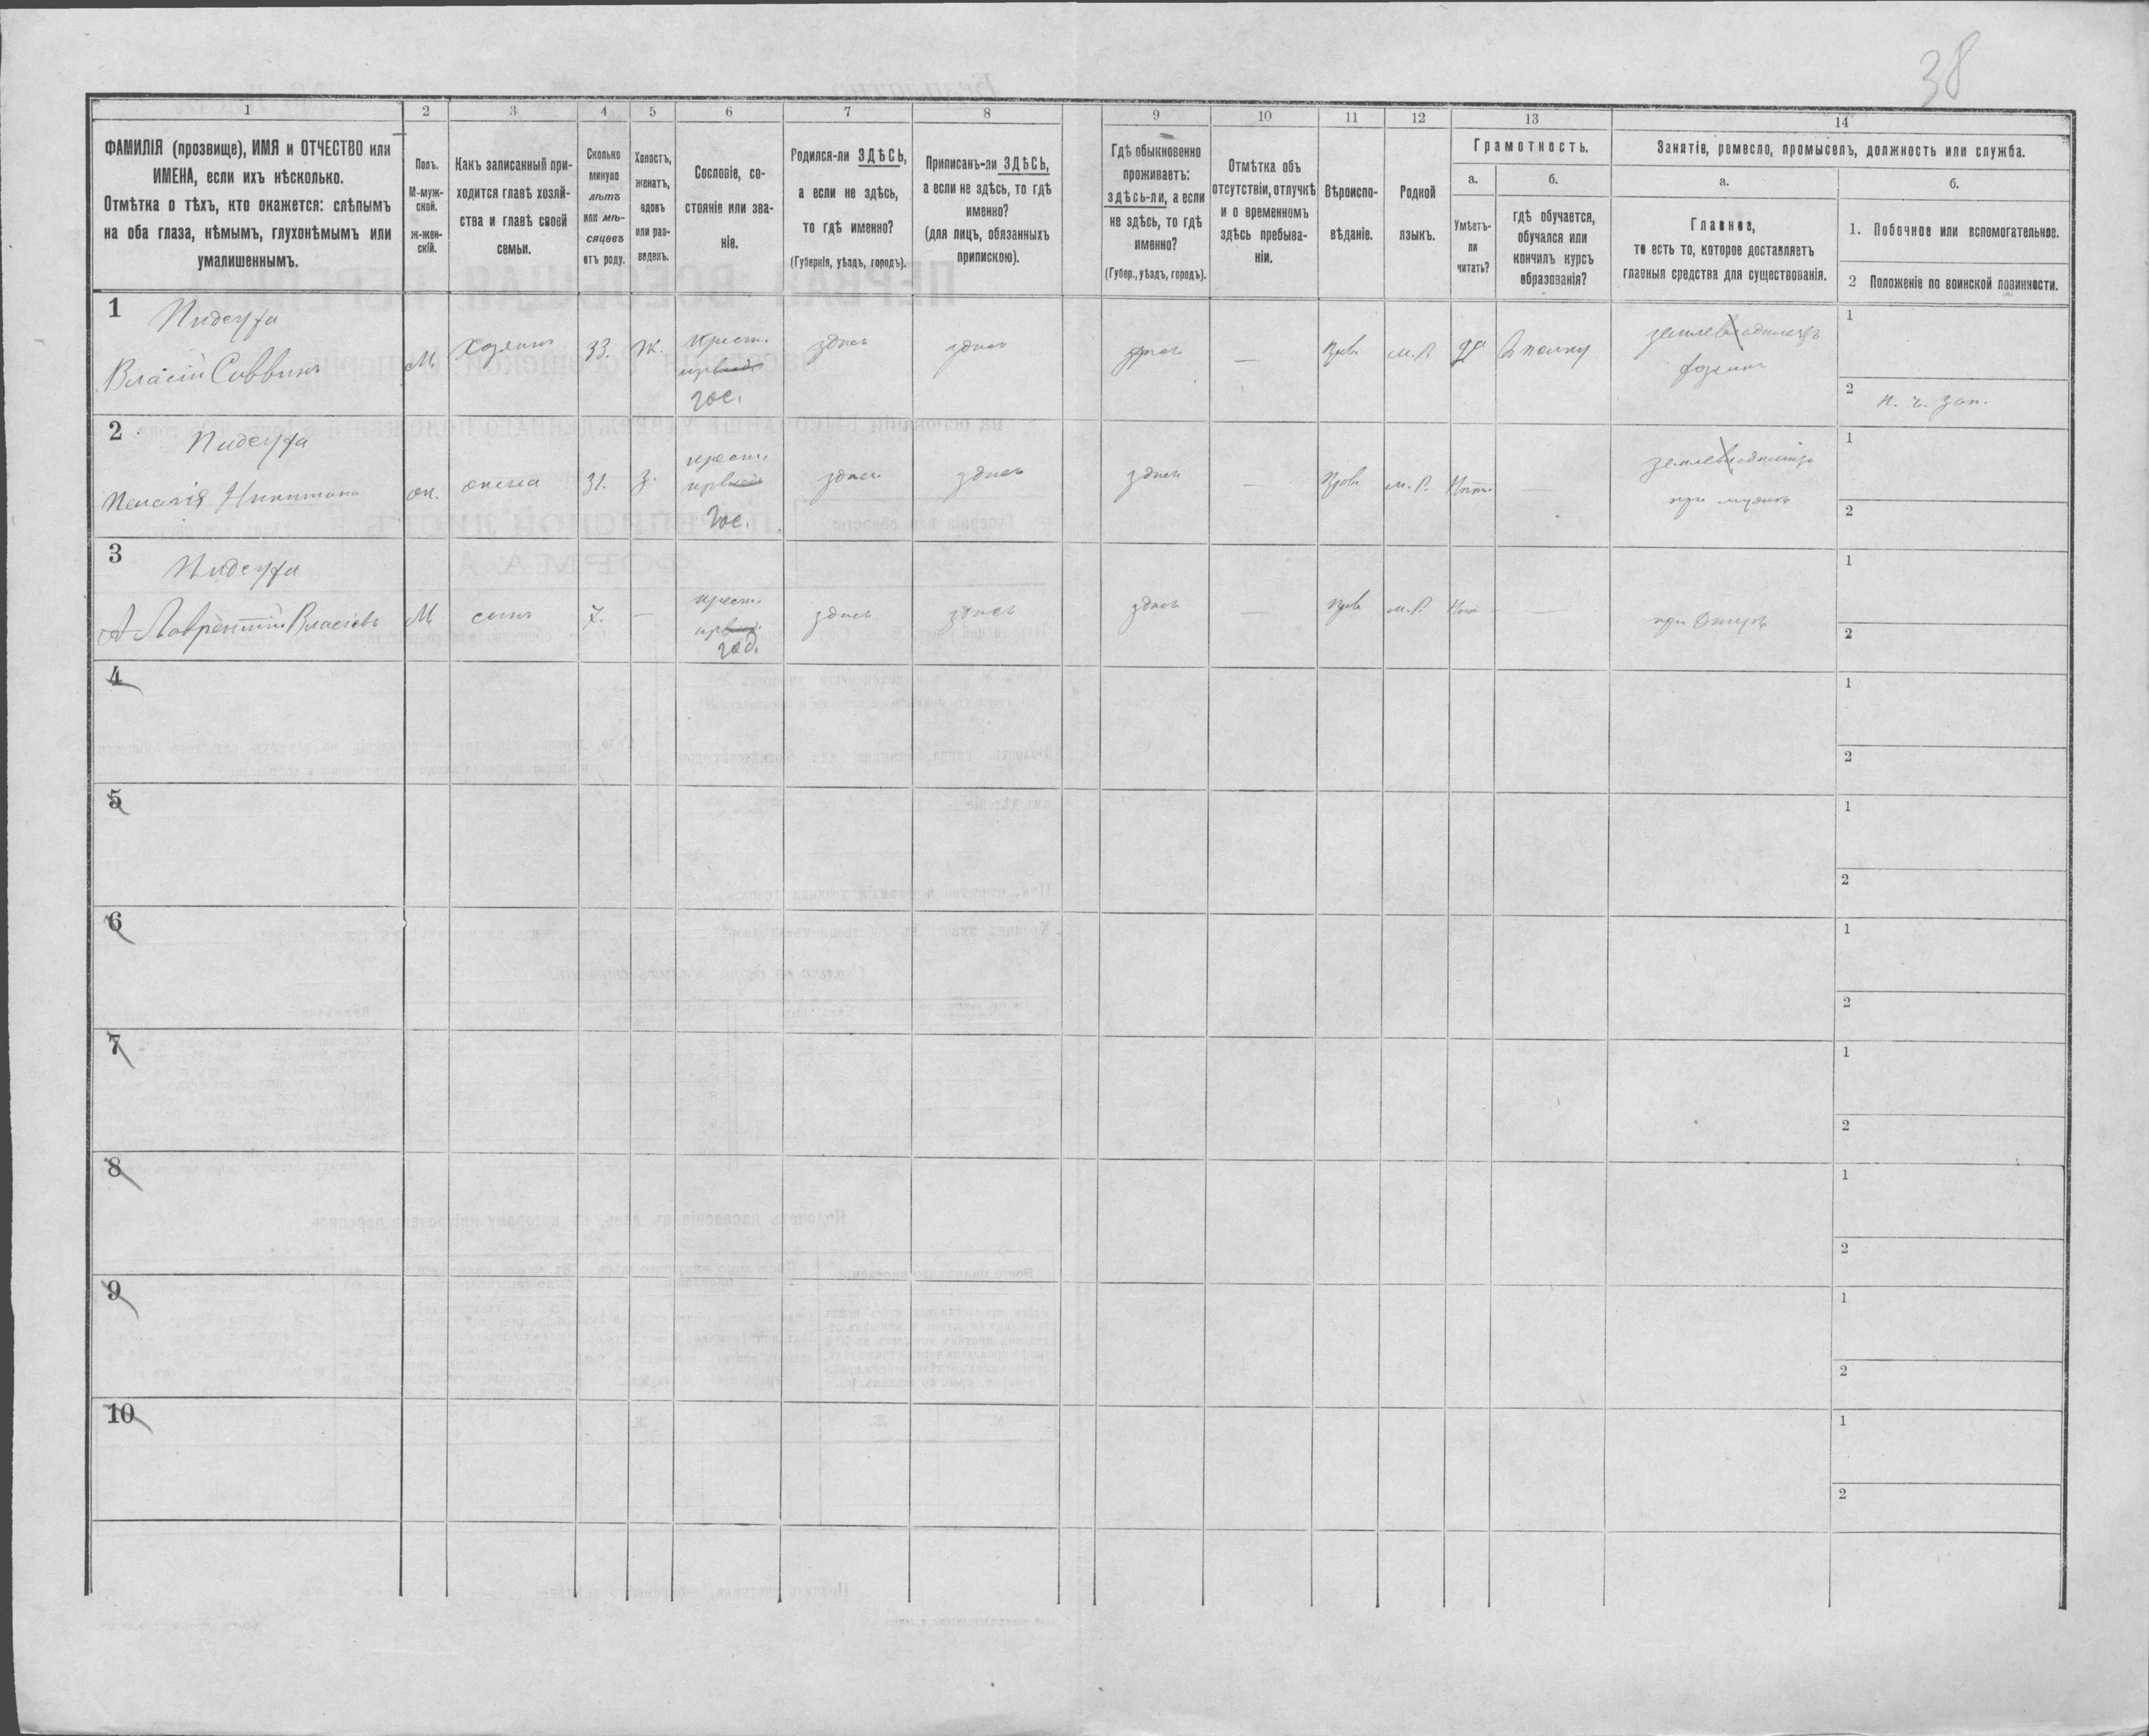 38
1 2 3 4 5 6 7 8 9 10 11 12 13 14
ФАМИЛІЯ (прозвище), ИМЯ и ОТЧЕСТВО или
ИМЕНА, если ихъ нѣсколько.
Отмѣтка о тѣхъ, кто окажется: слѣпымъ
на оба глаза, нѣмымъ, глухонѣмымъ или
умалишеннымъ.
Полъ.
М-муж-
ской.
Ж-жен-
скій.
Какъ записанный при-
ходится главѣ хозяй-
ства и главѣ своей
семьи.
Сколько
минуло
лѣтъ
или мѣ-
сяцевъ
отъ роду.
Холостъ,
женатъ,
вдовъ
или раз-
веденъ.
Сословіе, со-
стояніе или зва-
ніе.
Родился-ли ЗДѢСЬ,
а если не здѣсь,
то гдѣ именно?
(Губернія, уѣздъ, городъ).
Приписанъ-ли ЗДѢСЬ,
а если не здѣсь, то гдѣ
именно?
(для лицъ, обязанныхъ
припискою).
Гдѣ обыкновенно
проживаетъ:
здѣсь-ли, а если
не здѣсь, то гдѣ
именно?
(Губер., уѣздъ, городъ).
Отмѣтка объ
отсутствіи, отлучкѣ
и о временномъ
здѣсь пребыва-
ніи.
Вѣроиспо-
вѣданіе.
Родной
языкъ.
Грамотность.
а.
Умѣетъ-
ли
читать?
б.
гдѣ обучается,
обучался или
кончилъ курсъ
образованія?
Занятіе, ремесло, промыселъ, должность или служба.
а.
Главное,
то есть то, которое доставляетъ
главныя средства для существованія.
б.
1. Побочное или вспомогательное.
2 Положеніе по воинской повинности.
1
Власій Саввинъ М. Хозяинъ 33. Ж. крест. здѣсь здѣсь — Прав. м. Р. да В полку
гос.
1
2 н. ч. зап.
2
31. З. крест. здѣсь здѣсь здѣсь — Прав. м. Р. Нѣтъ —
гос.
при мужѣ
1
2
3
Лаврентій Власіевъ М сынъ 7. — крест. здѣсь здѣсь здѣсь — Прав. м. Р. Нѣтъ —
при отцѣ
1
2
4
1
2
5
1
2
6
1
2
7
1
2
8
1
2
9
1
2
10
1
2